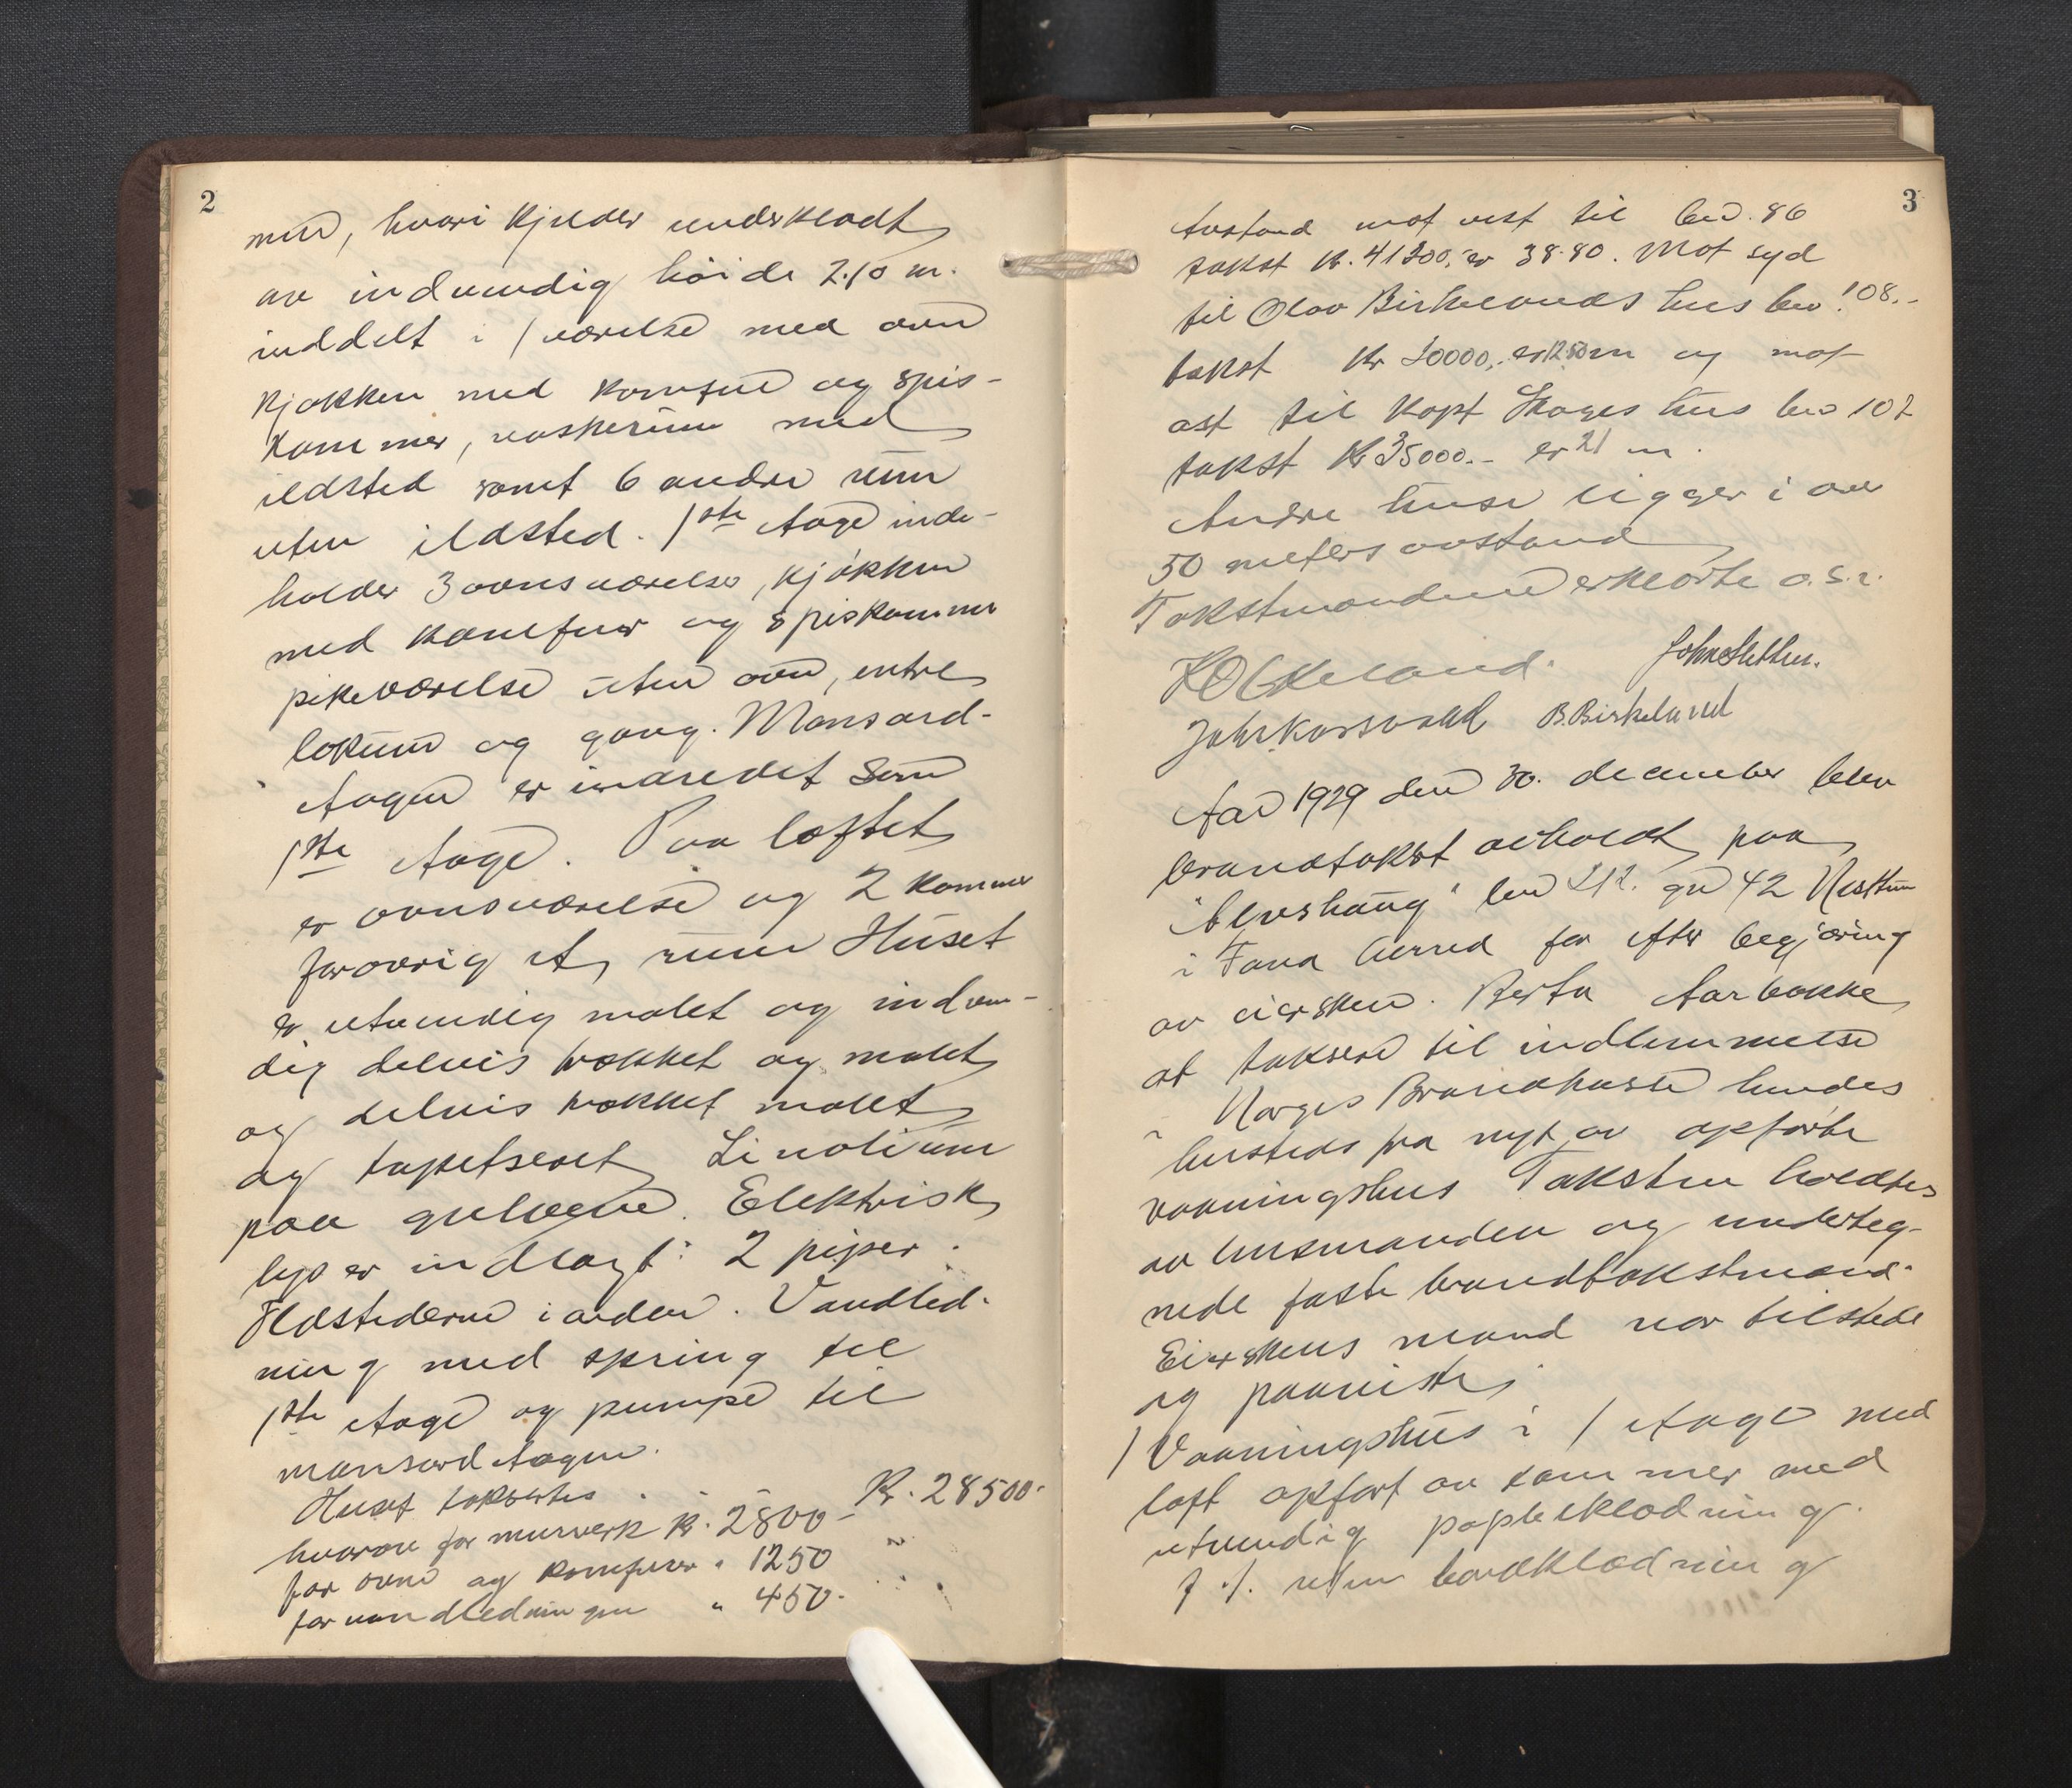 2
mur, hvori kjelder underkledt
av indvendig høide 2.10 m.
inddelt i 1 værelse med ovn
kjøkken med komfur og spis-
kammer, vaskerum med
ildsted samt 6 andre rum
uten ildsted. 1ste etage inde-
holder 3 ovnsværelser, kjøkken
med komfur og spiskammer
pikeværelse uten ovn, entre
lokum og gang. Mansard-
etagen er innredet som
1ste etage. Paa loftet
er ovnsværelse og 2 kammer
forøvrig et rum Huset
er utvendig malet og indven-
dig delvis trækket og malet
og delvis trækket malet
og tapetseret Linolium
paa gulvene. Elektrisk
lys er indlagt. 2 piper.
Ildstederne i orden. Vandled-
ning med spring til
1ste etage og pumpe til
mansardetagen.
Huset taksertes . - Kr. 28500.-
hvorav for murverk Kr. 2800 - "
for ovne og komfurer " 1250
for vandledningen " 450.-
3
Avstand mot vest til bno. 86
takst kr. 41200, er 38.80. Mot syd
til Olav Birkelands hus bno. 108.-
takst Kr 20000,- er 12.50 m og mot
øst til Kapt Hages hus bno 102
takst Kr 35000.- er 21 m.
Andre huse ligger i over
50 meters avstand
Takstmændene erklærte o.s.v.
K O Eikeland. John Sletten.
Joh. Korsvold B. Birkeland
Aar 1929 den 30. december blev
brandtakst avholdt paa
"Elvehaug" bno 212. gno 42 Nesttun
i Fana herred for efter begjæring
av eiersken. Berta Aarbakke
at taksere til indlemmelse
i Norges Brandkasse hendes
hersteds fra nyt av opførte
vaaningshus Taksten holdtes
av lensmanden og underteg-
nede faste brandtakstmænd.
Eierskens mand var tilstede
og paaviste
1 Vaaningshus i 1 etage med
loft opført av tømmer med
utvendig papbeklædning
f. t. uten bordklædning